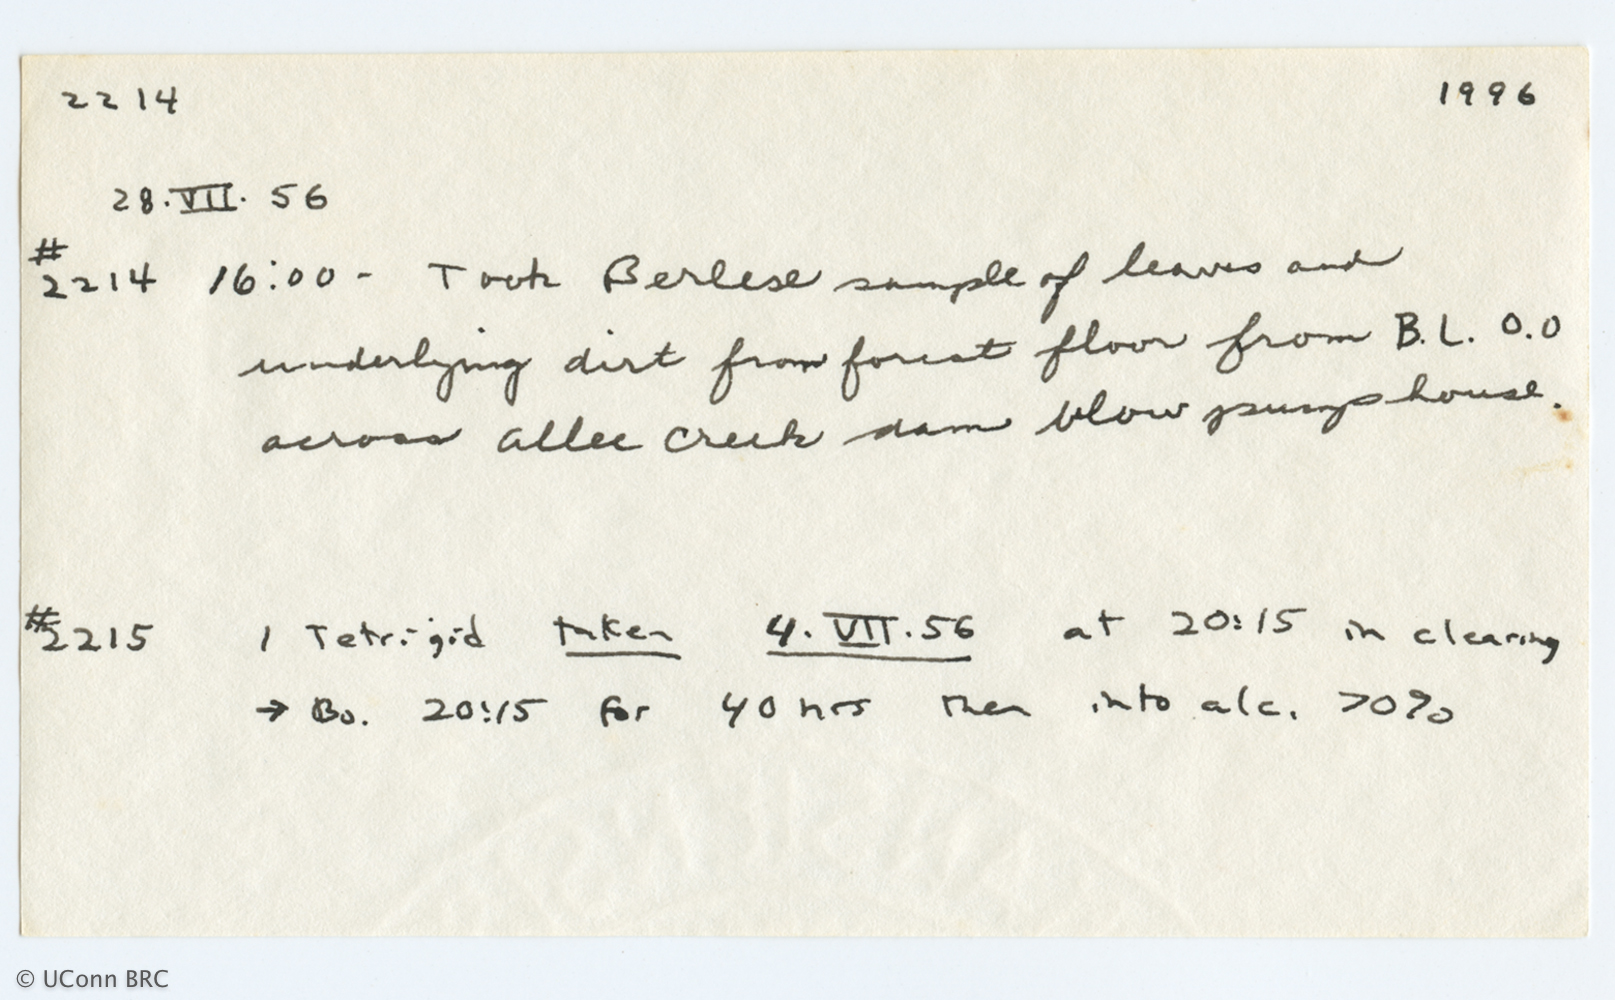 2214 1996
28.VII.56
#
2214 16:00 - Took Berlese sample of leaves and
underlying dirt from forest floor from B.L. 0.0
across Allee Creek dam blow pumphouse.
#2215 1 Tetrigid taken 4.VII.56 at 20:15 in clearing
→ Bo. 20:15 for 40 hrs then into alc. 70%
© UConn BRC